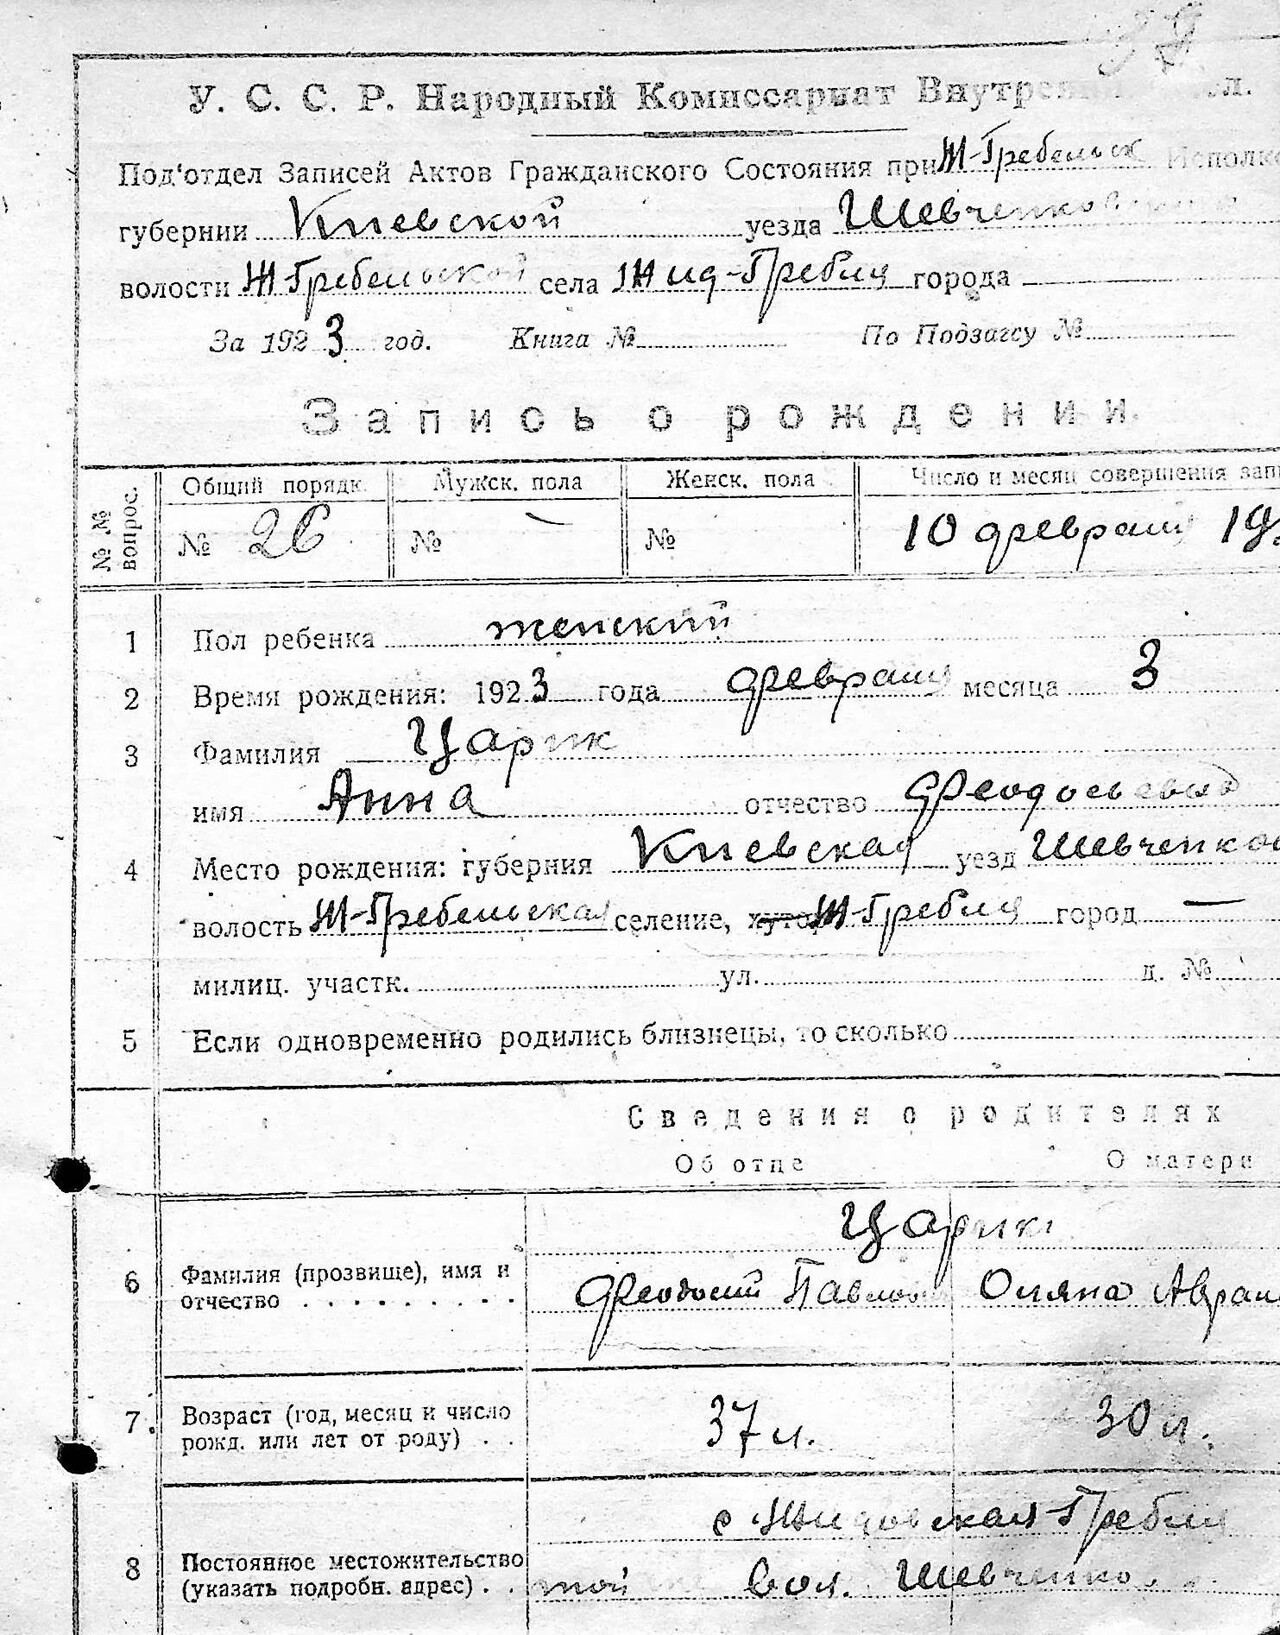 У. С. С. Р. Народный Комиссариат Внутрен
Под'отдел Записей Актов Гражданского Состояния при Ж-Гребельск Исполк
губернии Киевской уезда Шевченковского
волости Ж-Гребельской села Жид-Гребля города
За 1923 год. Книга № По Подзагсу №
Запись о рождении.
№ № вопрос.
Общий порядк. Мужск. пола Женск. пола Число и месяц совершения запи
№ 26 № — № 10 февраля 19
1 Пол ребенка женский
2 Время рождения: 1923 года февраля месяца 3
3 Фамилия Царик
имя Анна отчество Феодосьевна
4 Место рождения: губерния Киевская уезд Шевченков
волость Ж-Гребельская селение, хутор Ж-Гребля город —
милиц. участк. ул. д. №
5 Если одновременно родились близнецы, то сколько
Сведения о родителях
Об отце О матери
Царик
6 Фамилия (прозвище), имя и отчество Феодосий Павлов Оляна Аврам
7. Возраст (год, месяц и число рожд. или лет от роду) 37 л. 30 л.
с Жидовская-Гребля
8 Постоянное местожительство (указать подробн. адрес) той вол. Шевченко